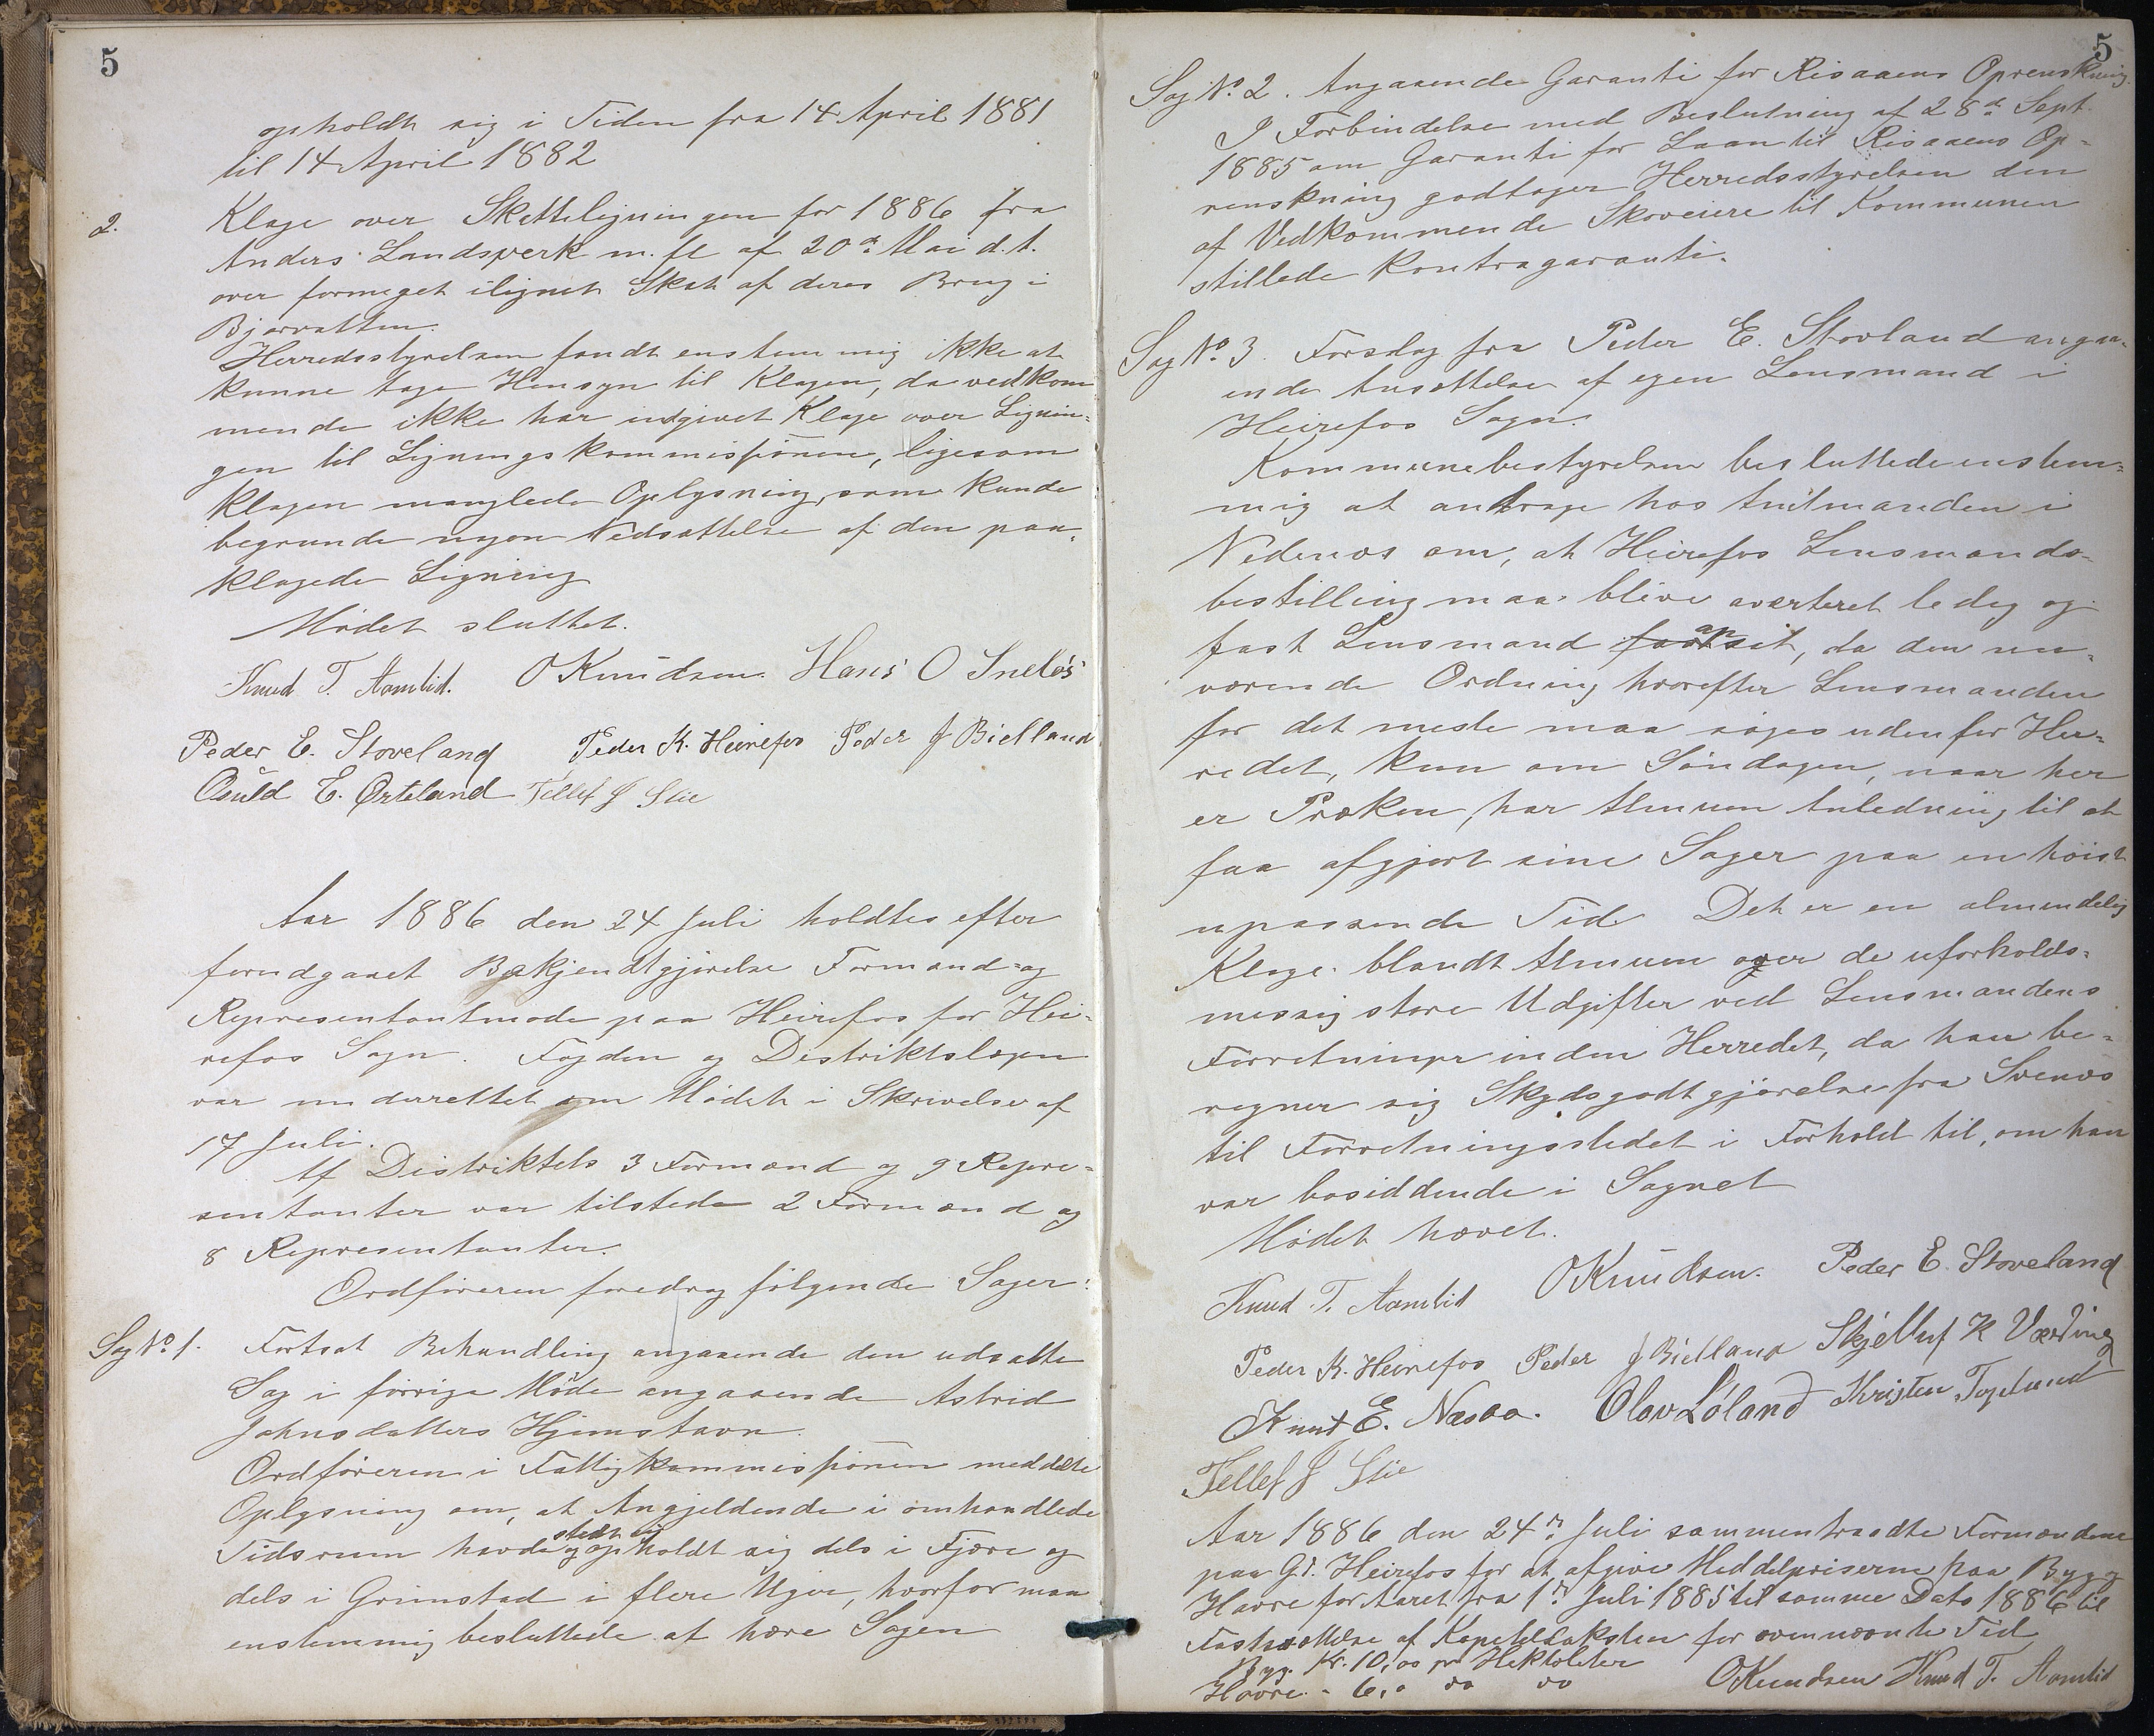 5
opholdt sig i Tiden fra 14 April 1881
til 14 April 1882
2. Klage over Skatteligningen for 1886 fra
Anders Landsverk m. fl af 20de Mai d. A.
over formeget ilignet Skat af deres Brug i
Bjorvatten.
Herredsstyrelsen fandt enstemmig ikke at
kunne tage Hensyn til Klagen, da vedkom
mende ikke har indgivet Klage over Lignin=
gen til Ligningskommissionen, ligesom
Klagen manglede Oplysning, som kunde
begrunde nogen Nedsættelse af den paa=
klagede Ligning
Mødet sluttet.
Knud T. Aamlid. OKnudsen. Hans O Sneløs
Peder E. Stoveland Peder K. Heirefos Peder J Bielland
Osuld E. Ørteland Tellef J Slie
Aar 1886 den 24 Juli holdtes efter
forudgaaet Bekjendtgjørelse Formand= og
Representantmøde paa Heirefos for Hei=
refos Sogn. Fogden og Distriktslægen
var underrettet om Mødet i Skrivelse af
17 Juli.
Af Distriktets 3 Formænd og 9 Repre=
sentanter var tilstede 2 Formænd og
8 Representanter.
Ordføreren foredrog følgende Sager:
Sag No. 1. Fortsat Behandling angaaende den udsatte
Sag i forrige Møde angaaende Astrid
Johnsdatters Hjemstavn.
Ordføreren i Fattigkommissionen meddelte
Oplysning om, at Angjeldende i omhandlede
Tidsrum havde stedt sig og opholdt sig dels i Fjære og
dels i Grimstad i flere Uger, hvorfor man
enstemmig besluttede at hæve Sagen
5
Sag No. 2. Angaaende Garanti for Risaaens Oprenskning.
I Forbindelse med Beslutning af 28de Sept.
1885 om Garanti for Laan til Risaaens Op=
renskning godtager Herredsstyrelsen den
af Vedkommende Skoveiere til Kommunen
stillede Kontragaranti.
Sag No. 3. Forslag fra Peder E. Stovland angaa=
ende Ansættelse af egen Lensmand i
Heirefos Sogn.
Kommunebestyrelsen besluttede enstem=
mig at andrage hos Amtmanden i
Nedenæs om, at Heirefos Lensmands=
bestilling maa blive averteret ledig og
fast Lensmand ansat, da den nu=
værende Ordning hvorefter Lensmanden
for det meste maa søges udenfor Her=
redet, kun om Søndagen, naar her
er Præken, har Almuen Anledning til at
faa afgjort sine Sager paa en høist
upassende Tid. Det er en almendelig
Klage blandt Almuen over de uforholds=
messig store Udgifter ved Lensmandens
Forretninger inden Herredet, da han be=
regner sig Skydsgodtgjørelse fra Svenæs
til Forretningsstedet i Forhold til, om han
var bosiddende i Sognet
Mødet hævet.
Knud T. Aamlid OKnudsen. Peder E. Stoveland
Peder K. Heirefos Peder J Bielland Skjelluf K Væding
Knut E. Næsaa. Olav Løland Kristen Topelund
Tellef J Slie
Aar 1886 den 24de Juli sammentraadte Formændene
paa Gd. Heirefos for at afgive Meddelpriserne paa Byg og
Havre for Aaret fra 1ste Juli 1885 til samme Dato 1886 til
Fastsættelse af Kapiteltaksten for ovennævnte Tid
Byg. Kr. 10,00 pr Hektoliter
Havre - 6,0 do do OKnudsen Knud T. Aamlid